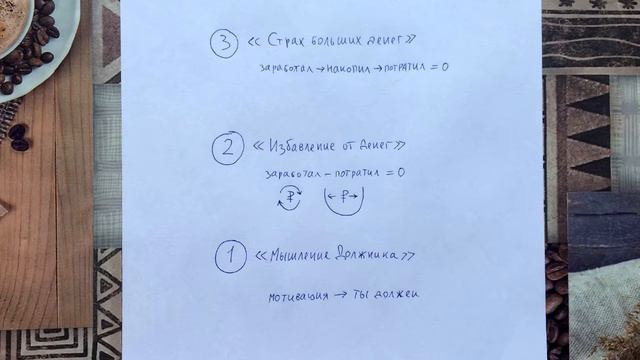 3 << Страх больших денег >>
заработал → накопил → потратил = 0
2 << Избавление от денег >>
заработал – потратил = 0
₽ ← ₽ →
1 << Мышление Должника >>
мотивация → ты должен